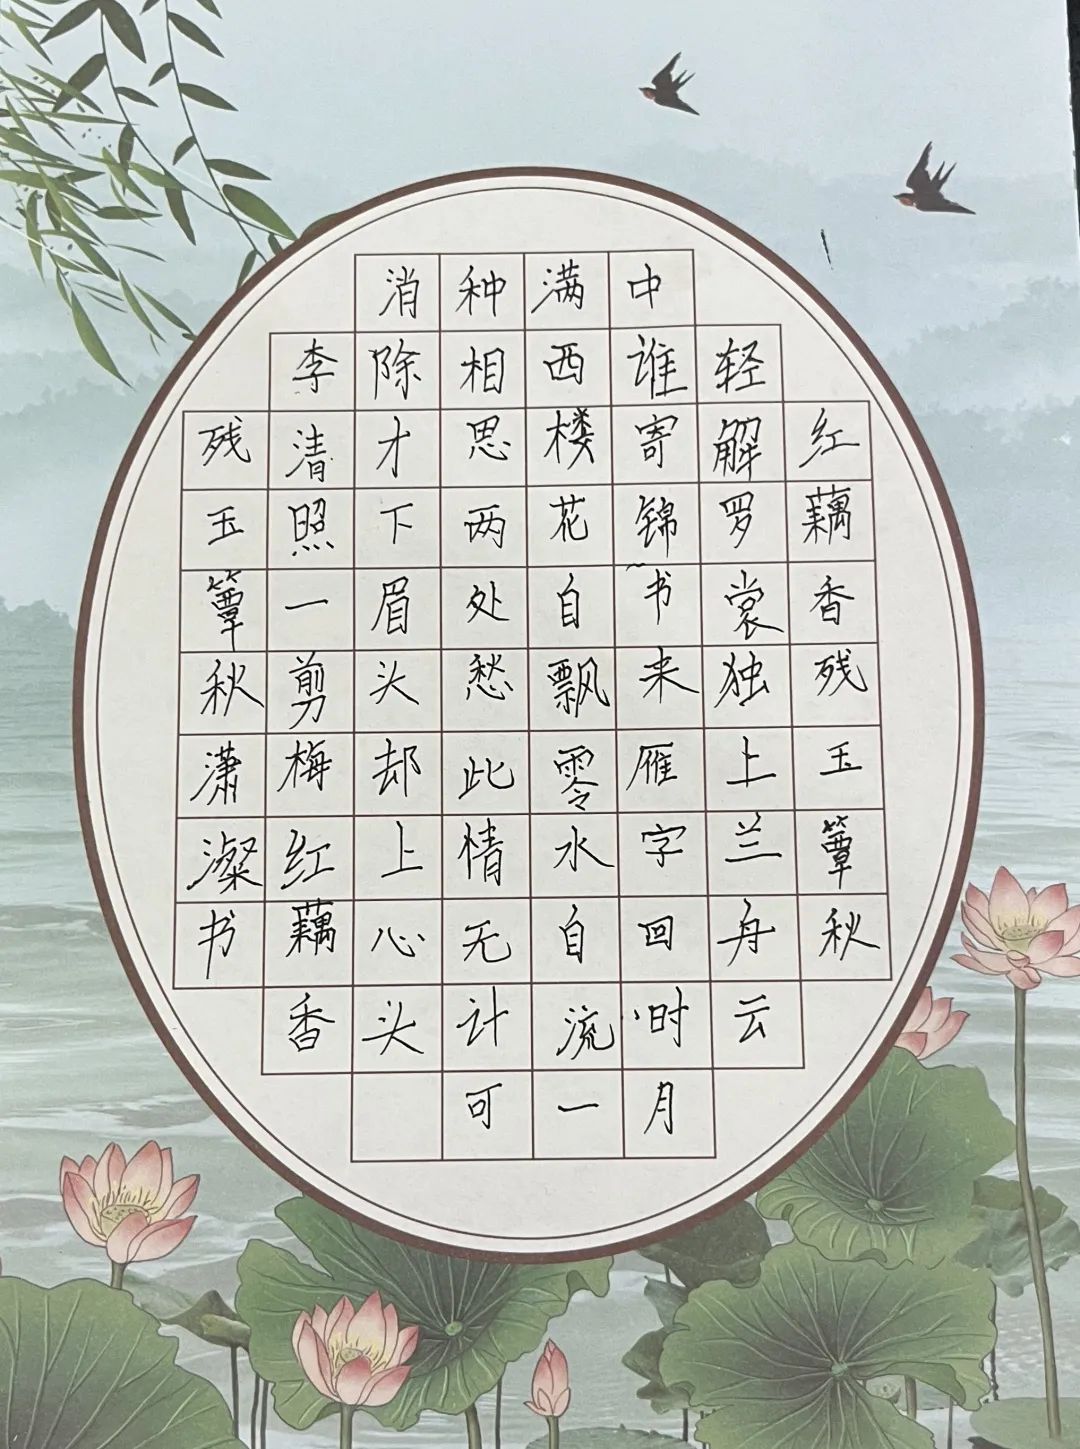 红藕香残玉簟秋
轻解罗裳独上兰舟云
中谁寄锦书来雁字回时月
满西楼花自飘零水自流一
种相思两处愁此情无计可
消除才下眉头却上心头
李清照一剪梅红藕香
残玉簟秋潇澯书